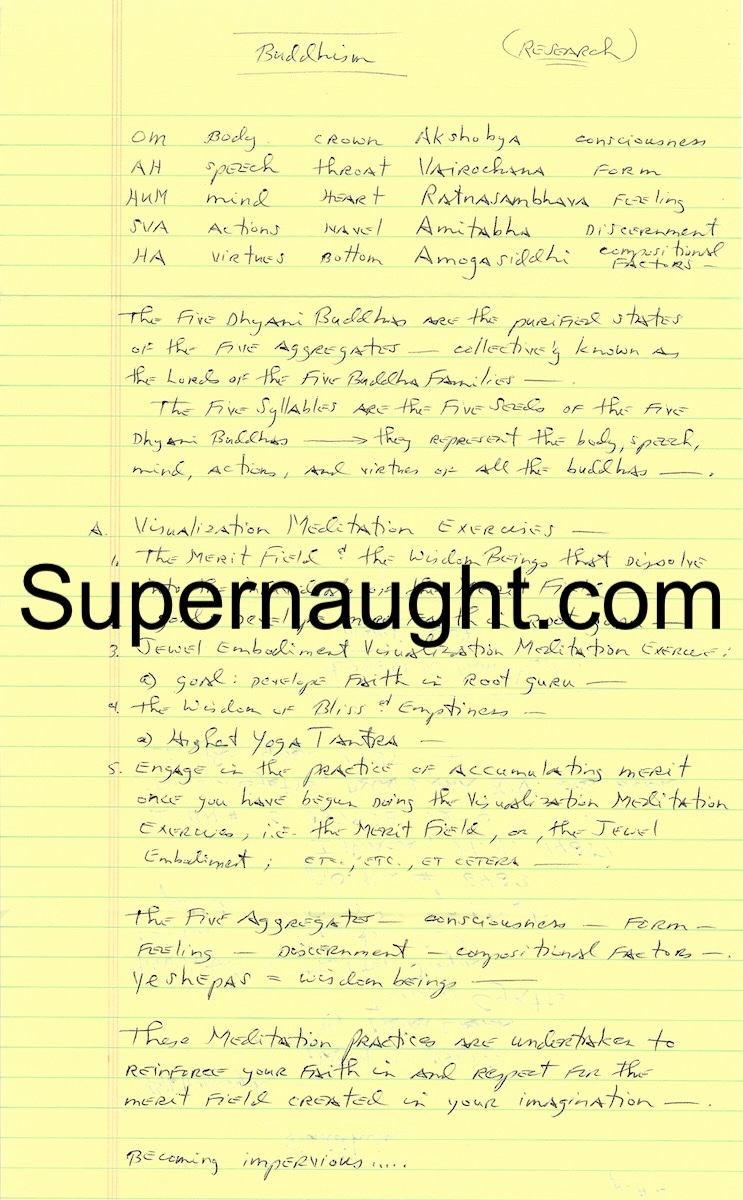 Buddhism (RESEARCH)
OM Body CROWN Akshobya consciousness
AH speech throat Vairochana Form
HUM mind HEART Ratnasambhava Feeling
SVA Actions NAVEL Amitabha Discernment
HA virtues Bottom Amogasiddhi compositional FACTORS —
The Five Dhyani Buddhas are the purified states
of the Five Aggregates — collectively known as
the Lords of the Five Buddha Families —.
The Five Syllables are the Five Seeds of the Five
Dhyani Buddhas ⟶ they represent the body, speech,
mind, actions, and virtues of all the buddhas —.
A. Visualization Meditation Exercises —
1. The Merit Field & the Wisdom Beings that dissolve
Supernaught.com
3. Jewel Embodiment Visualization Meditation Exercise:
a) goal: develope Faith in Root guru —
4. the Wisdom of Bliss & Emptiness —
a) Highest Yoga Tantra —
5. Engage in the practice of accumulating merit
once you have begun doing the Visualization Meditation
Exercises, i.e. the Merit Field, or, the Jewel
Embodiment; etc., etc., et cetera —
The Five Aggregates — consciousness — Form —
Feeling — Discernment — compositional Factors —.
yeshepas = wisdom beings —
These Meditation practices are undertaken to
reinforce your Faith in and respect for the
merit field created in your imagination —.
Becoming impervious.....